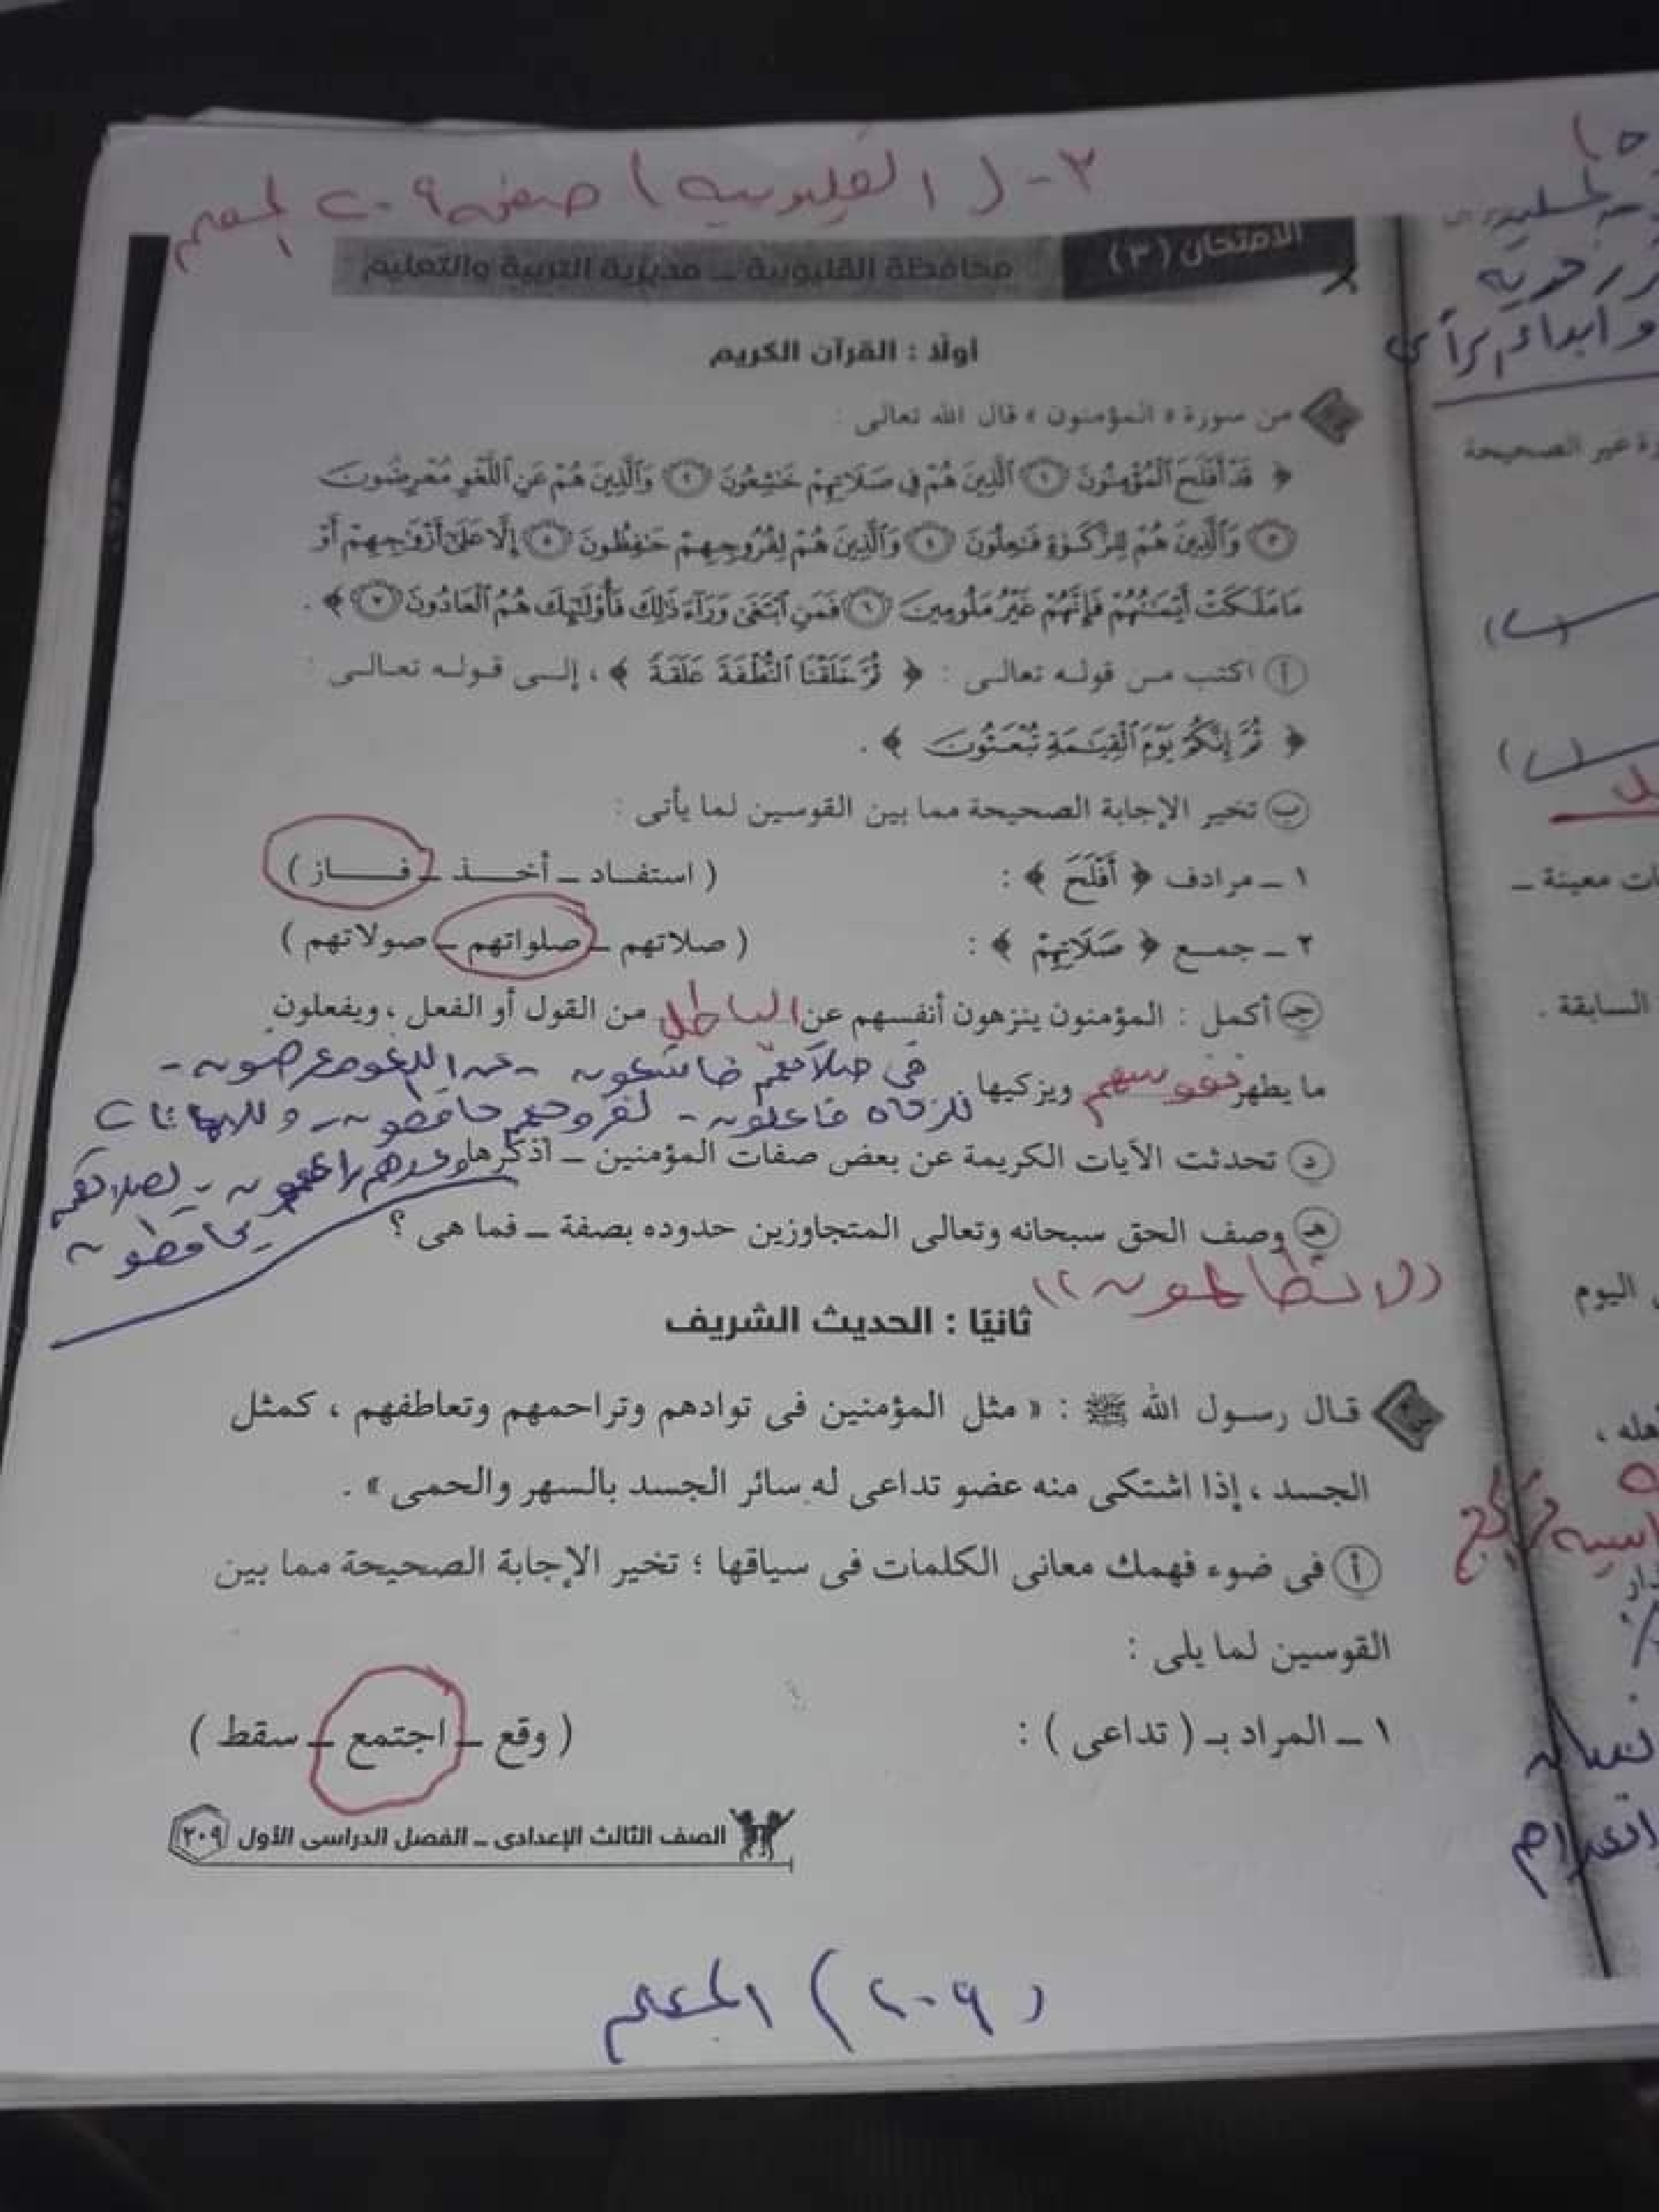 ٣- ( القليوبية ) صفحة ٢٠٩ المعلم
الامتحان (٣)
محافظة القليوبية ـ مديرية التربية والتعليم
أولًا : القرآن الكريم
من سورة « المؤمنون » قال الله تعالى :
﴿ قَدْ أَفْلَحَ الْمُؤْمِنُونَ ١ الَّذِينَ هُمْ فِي صَلَاتِهِمْ خَاشِعُونَ ٢ وَالَّذِينَ هُمْ عَنِ اللَّغْوِ مُعْرِضُونَ
٣ وَالَّذِينَ هُمْ لِلزَّكَاةِ فَاعِلُونَ ٤ وَالَّذِينَ هُمْ لِفُرُوجِهِمْ حَافِظُونَ ٥ إِلَّا عَلَىٰ أَزْوَاجِهِمْ أَوْ
مَا مَلَكَتْ أَيْمَانُهُمْ فَإِنَّهُمْ غَيْرُ مَلُومِينَ ٦ فَمَنِ ابْتَغَىٰ وَرَاءَ ذَٰلِكَ فَأُولَٰئِكَ هُمُ الْعَادُونَ ٧ ﴾ .
أ اكتب من قوله تعالى : ﴿ ثُمَّ خَلَقْنَا النُّطْفَةَ عَلَقَةً ﴾ ، إلى قوله تعالى :
﴿ ثُمَّ إِنَّكُمْ يَوْمَ الْقِيَامَةِ تُبْعَثُونَ ﴾ .
ب تخير الإجابة الصحيحة مما بين القوسين لما يأتى :
١ ـ مرادف ﴿ أَفْلَحَ ﴾ : ( استفاد ـ أخذ ـ فاز )
٢ ـ جمع ﴿ صَلَاتِهِمْ ﴾ : ( صلاتهم ـ صلواتهم ـ صولاتهم )
جـ أكمل : المؤمنون ينزهون أنفسهم عن الباطل من القول أو الفعل ، ويفعلون
ما يطهر نفوسهم ويزكيها
فى صلاتهم خاشعون - عن اللغو معرضون -
للزكاة فاعلون - لفروجهم حافظون -
د تحدثت الآيات الكريمة عن بعض صفات المؤمنين ـ اذكرها
وعهدهم راعون - لصلاتهم
يحافظون
هـ وصف الحق سبحانه وتعالى المتجاوزين حدوده بصفة ـ فما هى ؟
ثانيًا : الحديث الشريف
قال رسول الله ﷺ : « مثل المؤمنين فى توادهم وتراحمهم وتعاطفهم ، كمثل
الجسد ، إذا اشتكى منه عضو تداعى له سائر الجسد بالسهر والحمى » .
أ فى ضوء فهمك معانى الكلمات فى سياقها ؛ تخير الإجابة الصحيحة مما بين
القوسين لما يلى :
١ ـ المراد بـ ( تداعى ) : ( وقع ـ اجتمع ـ سقط )
الصف الثالث الإعدادى ـ الفصل الدراسى الأول ٢٠٩
( ٢٠٩ ) المعلم
وابداء الرأى
رة غير الصحيحة
ات معينة ـ
السابقة .
اليوم